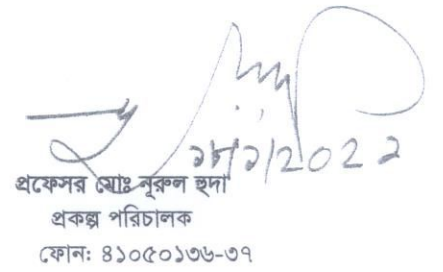 ১৮/১/2022
প্রফেসর মোঃ নূরুল হুদা
প্রকল্প পরিচালক
ফোন: ৪১০৫০১৩৬-৩৭